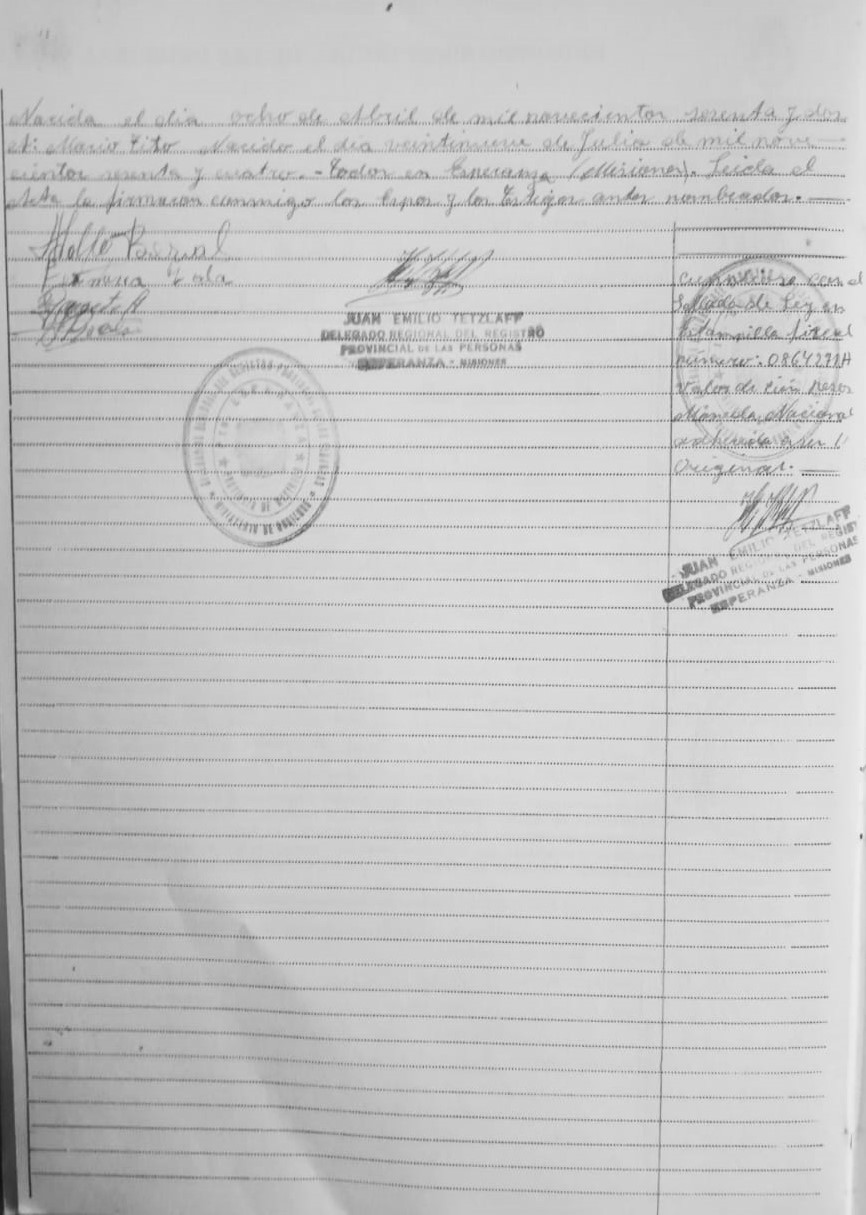 Nacida el dia ocho de Abril de mil novecientos sesenta y dos
A: Mario Tito Nacido el dia veintinueve de Julio de mil nove
cientos sesenta y cuatro.- Todos en Esperanza (Misiones). Leida el
Acta la firmaron conmigo los Espos y los Testigos antes nombrados.-
JUAN EMILIO TETZLAFF
DELEGADO REGIONAL DEL REGISTRO
PROVINCIAL DE LAS PERSONAS
ESPERANZA - MISIONES
con el
Sellado de Ley en
Estampilla fiscal
número: 0864271A
Valor de cien pesos
Moneda Nacional
adherida a su
Original.-
JUAN EMILIO TETZLAFF
DELEGADO REGIONAL DEL REGIST
PROVINCIAL DE LAS PERSONAS
ESPERANZA - MISIONES